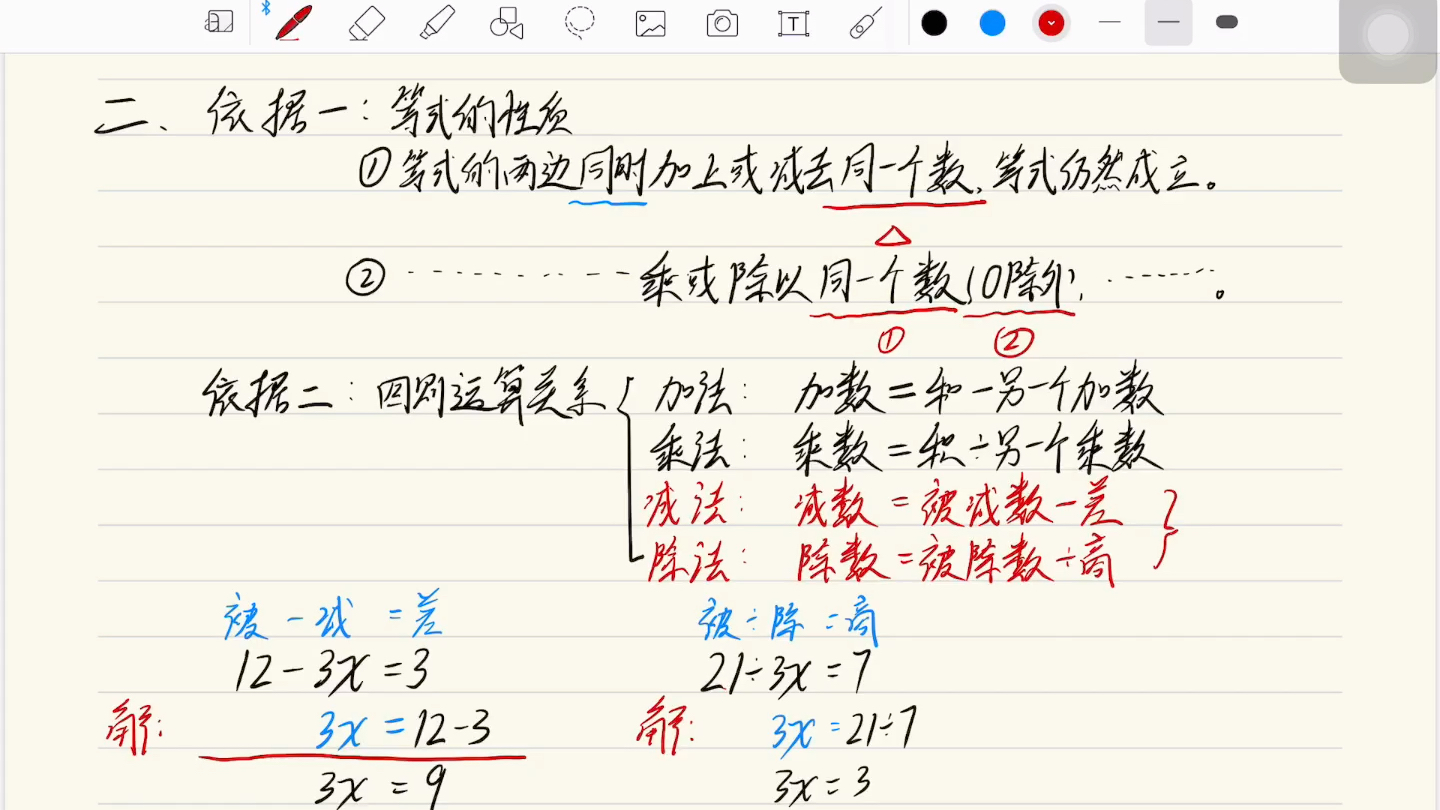 二、依据一：等式的性质
①等式的两边同时加上或减去同一个数，等式仍然成立。
△
② ………… 乘或除以同一个数（0除外，………。
① ②
依据二：四则运算关系
加法： 加数=和-另一个加数
乘法： 乘数=积÷另一个乘数
减法： 减数=被减数-差
除法： 除数=被除数÷商
被-减=差 被÷除=商
12-3x=3 21÷3x=7
解： 3x=12-3 解： 3x=21÷7
3x=9 3x=3